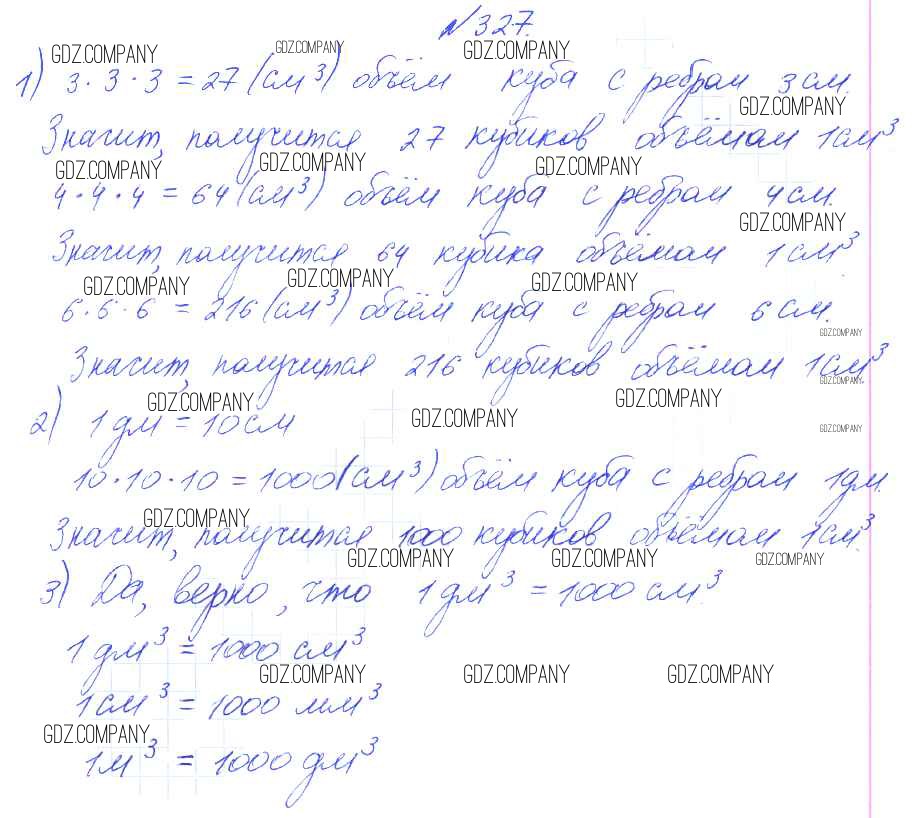 №327.
1) 3·3·3=27(см³) объём куба с ребром 3см.
Значит, получится 27 кубиков объёмом 1см³
4·4·4=64(см³) объём куба с ребром 4см.
Значит, получится 64 кубика объёмом 1см³
6·6·6=216(см³) объём куба с ребром 6см.
Значит, получится 216 кубиков объёмом 1см³
2) 1дм=10см
10·10·10=1000(см³) объём куба с ребром 1дм.
Значит, получится 1000 кубиков объёмом 1см³.
3) Да, верно, что 1дм³=1000см³.
1дм³=1000см³
1см³=1000мм³
1м³=1000дм³
GDZ.COMPANY GDZ.COMPANY GDZ.COMPANY
GDZ.COMPANY
GDZ.COMPANY GDZ.COMPANY GDZ.COMPANY
GDZ.COMPANY
GDZ.COMPANY GDZ.COMPANY GDZ.COMPANY
GDZ.COMPANY
GDZ.COMPANY
GDZ.COMPANY GDZ.COMPANY GDZ.COMPANY
GDZ.COMPANY
GDZ.COMPANY
GDZ.COMPANY GDZ.COMPANY GDZ.COMPANY
GDZ.COMPANY GDZ.COMPANY GDZ.COMPANY
GDZ.COMPANY